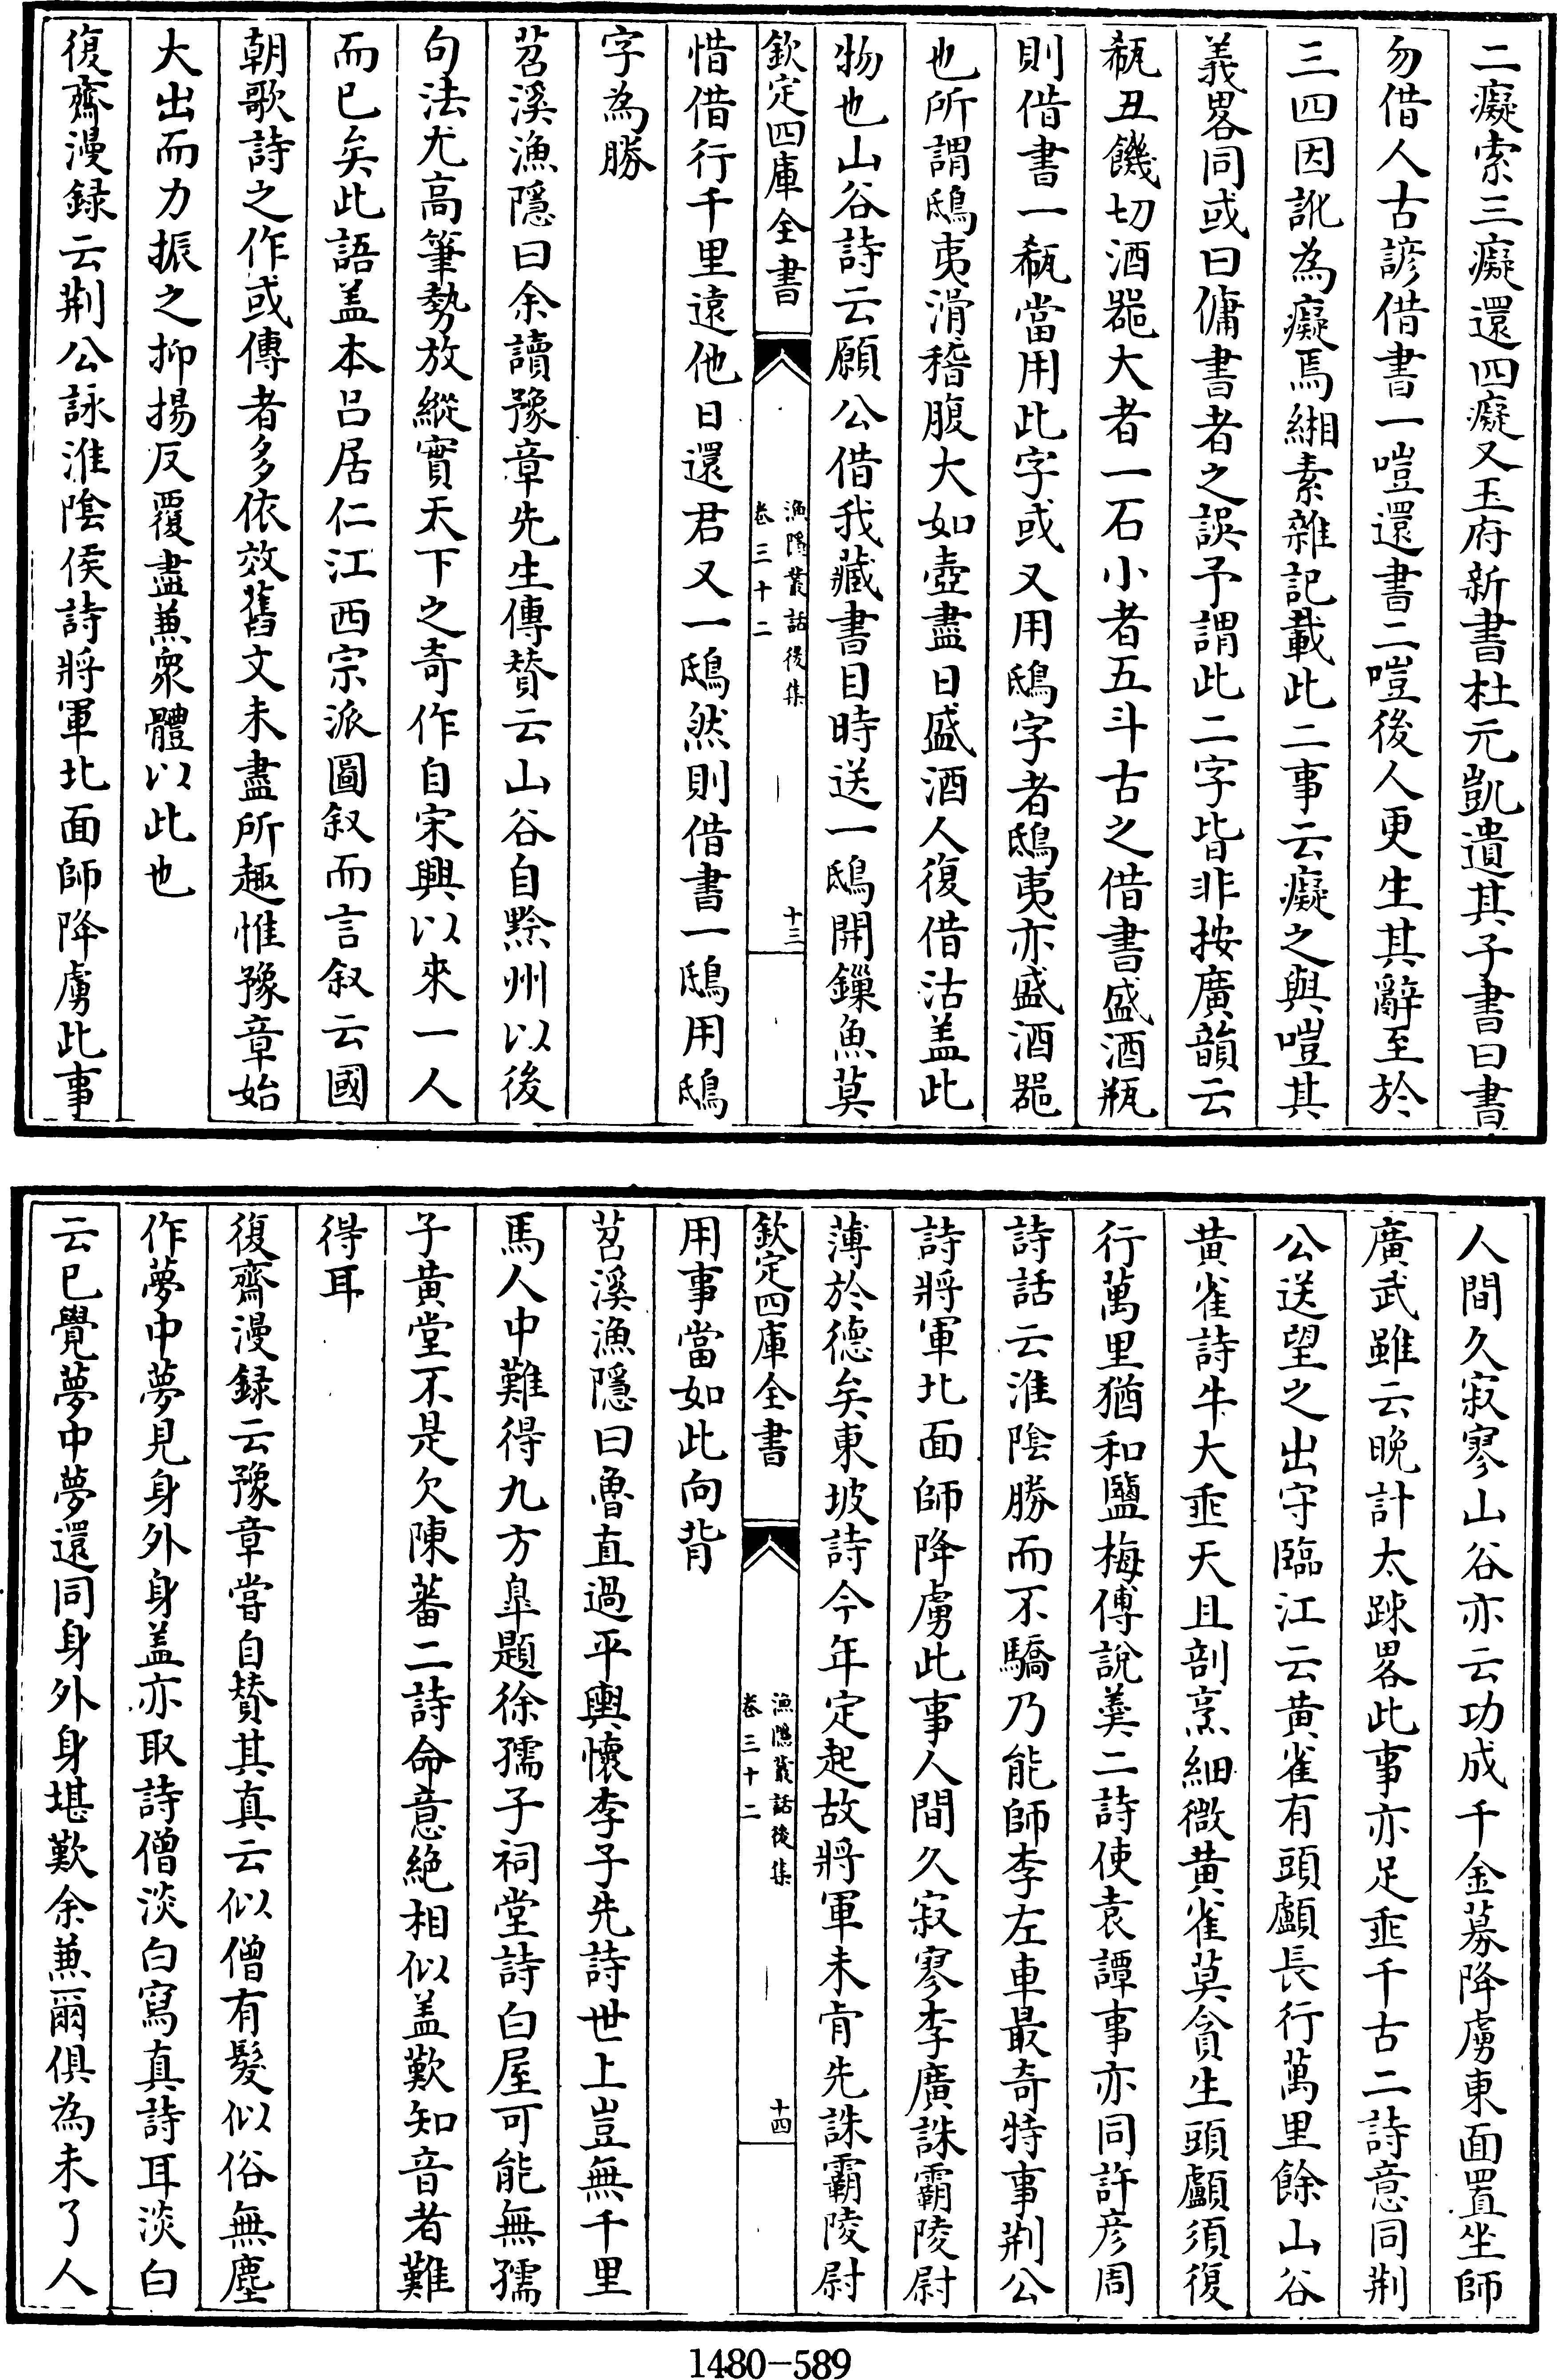 二癡索三癡還四癡又玉府新書杜元凱遺其子書曰書
勿借人古諺借書一嘡還書二嘡後人更生其辭至於
三四因訛為癡焉緗素雜記載此二事云癡之與嘡其
義畧同或曰傭書者之誤予謂此二字皆非按廣韻云
瓻丑饑切酒噐大者一石小者五斗古之借書盛酒瓶
則借書一瓻當用此字或又用鴟字者鴟夷亦盛酒噐
也所謂鴟夷滑稽腹大如壺盡日盛酒人復借沽盖此
物也山谷詩云願公借我藏書目時送一鴟開鏁魚莫
欽定四庫全書
漁隱叢話後集
卷三十二
十三
惜借行千里遠他日還君又一鴟然則借書一鴟用鴟
字為勝
苕溪漁隱曰余讀豫章先生傳贊云山谷自黔州以後
句法尤高筆勢放縱實天下之奇作自宋興以來一人
而已矣此語盖本吕居仁江西宗派圖叙而言叙云國
朝歌詩之作或傳者多依效舊文未盡所趣惟豫章始
大出而力振之抑揚反覆盡兼衆體以此也
復齋漫録云荆公詠淮陰侯詩將軍北面師降虜此事
人間久寂寥山谷亦云功成千金募降虜東面置坐師
廣武雖云晚計太踈畧此事亦足垂千古二詩意同荆
公送望之出守臨江云黄雀有頭顱長行萬里餘山谷
黄雀詩牛大垂天且剖烹細微黄雀莫貪生頭顱須復
行萬里猶和鹽梅傅說羹二詩使袁譚事亦同許彦周
詩話云淮陰勝而不驕乃能師李左車最奇特事荆公
詩將軍北面師降虜此事人間久寂寥李廣誅霸陵尉
薄於德矣東坡詩今年定起故將軍未肯先誅霸陵尉
欽定四庫全書
漁隱叢話後集
卷三十二
十四
用事當如此向背
苕溪漁隱曰魯直過平輿懷李子先詩世上豈無千里
馬人中難得九方臯題徐孺子祠堂詩白屋可能無孺
子黄堂不是欠陳蕃二詩命意絶相似盖歎知音者難
得耳
復齋漫録云豫章嘗自贊其真云似僧有髮似俗無塵
作夢中夢見身外身盖亦取詩僧淡白寫真詩耳淡白
云已覺夢中夢還同身外身堪歎余兼爾俱為未了人
1480-589